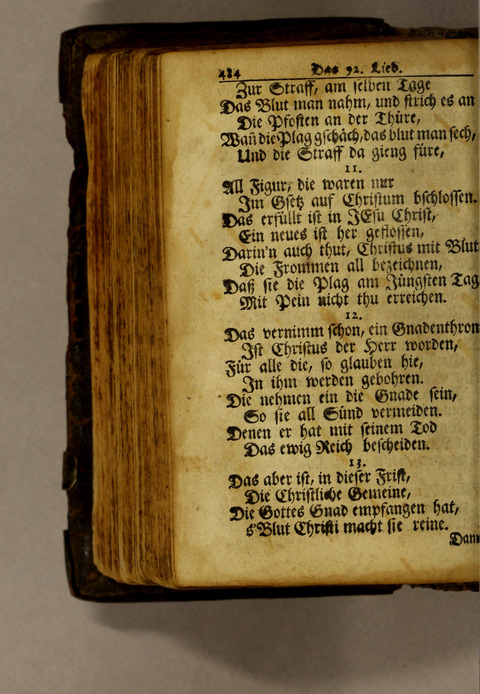 484 Das 92. Lied.
Zur Straff, am selben Tage
Das Blut man nahm, und strich es an
Die Pfosten an der Thüre,
Wañ die Plag gschäch, das blut man sech,
Und die Straff da gieng füre,
11.
All Figur, die waren nur
Im Gsetz auf Christum bschlossen.
Das erfüllt ist in JEsu Christ,
Ein neues ist her geflossen,
Darin'n auch thut, Christus mit Blut
Die Frommen all bezeichnen,
Daß sie die Plag am Jüngsten Tag
Mit Pein nicht thu erreichen.
12.
Das vernimm schon, ein Gnadenthron
Ist Christus der Herr worden,
Für alle die, so glauben hie,
In ihm werden gebohren.
Die nehmen ein die Gnade sein,
So sie all Sünd vermeiden.
Denen er hat mit seinem Tod
Das ewig Reich bescheiden.
13.
Das aber ist, in dieser Frist,
Die Christliche Gemeine,
Die Gottes Gnad empfangen hat,
s'Blut Christi macht sie reine.
Dann